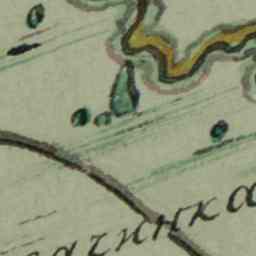 ачинка